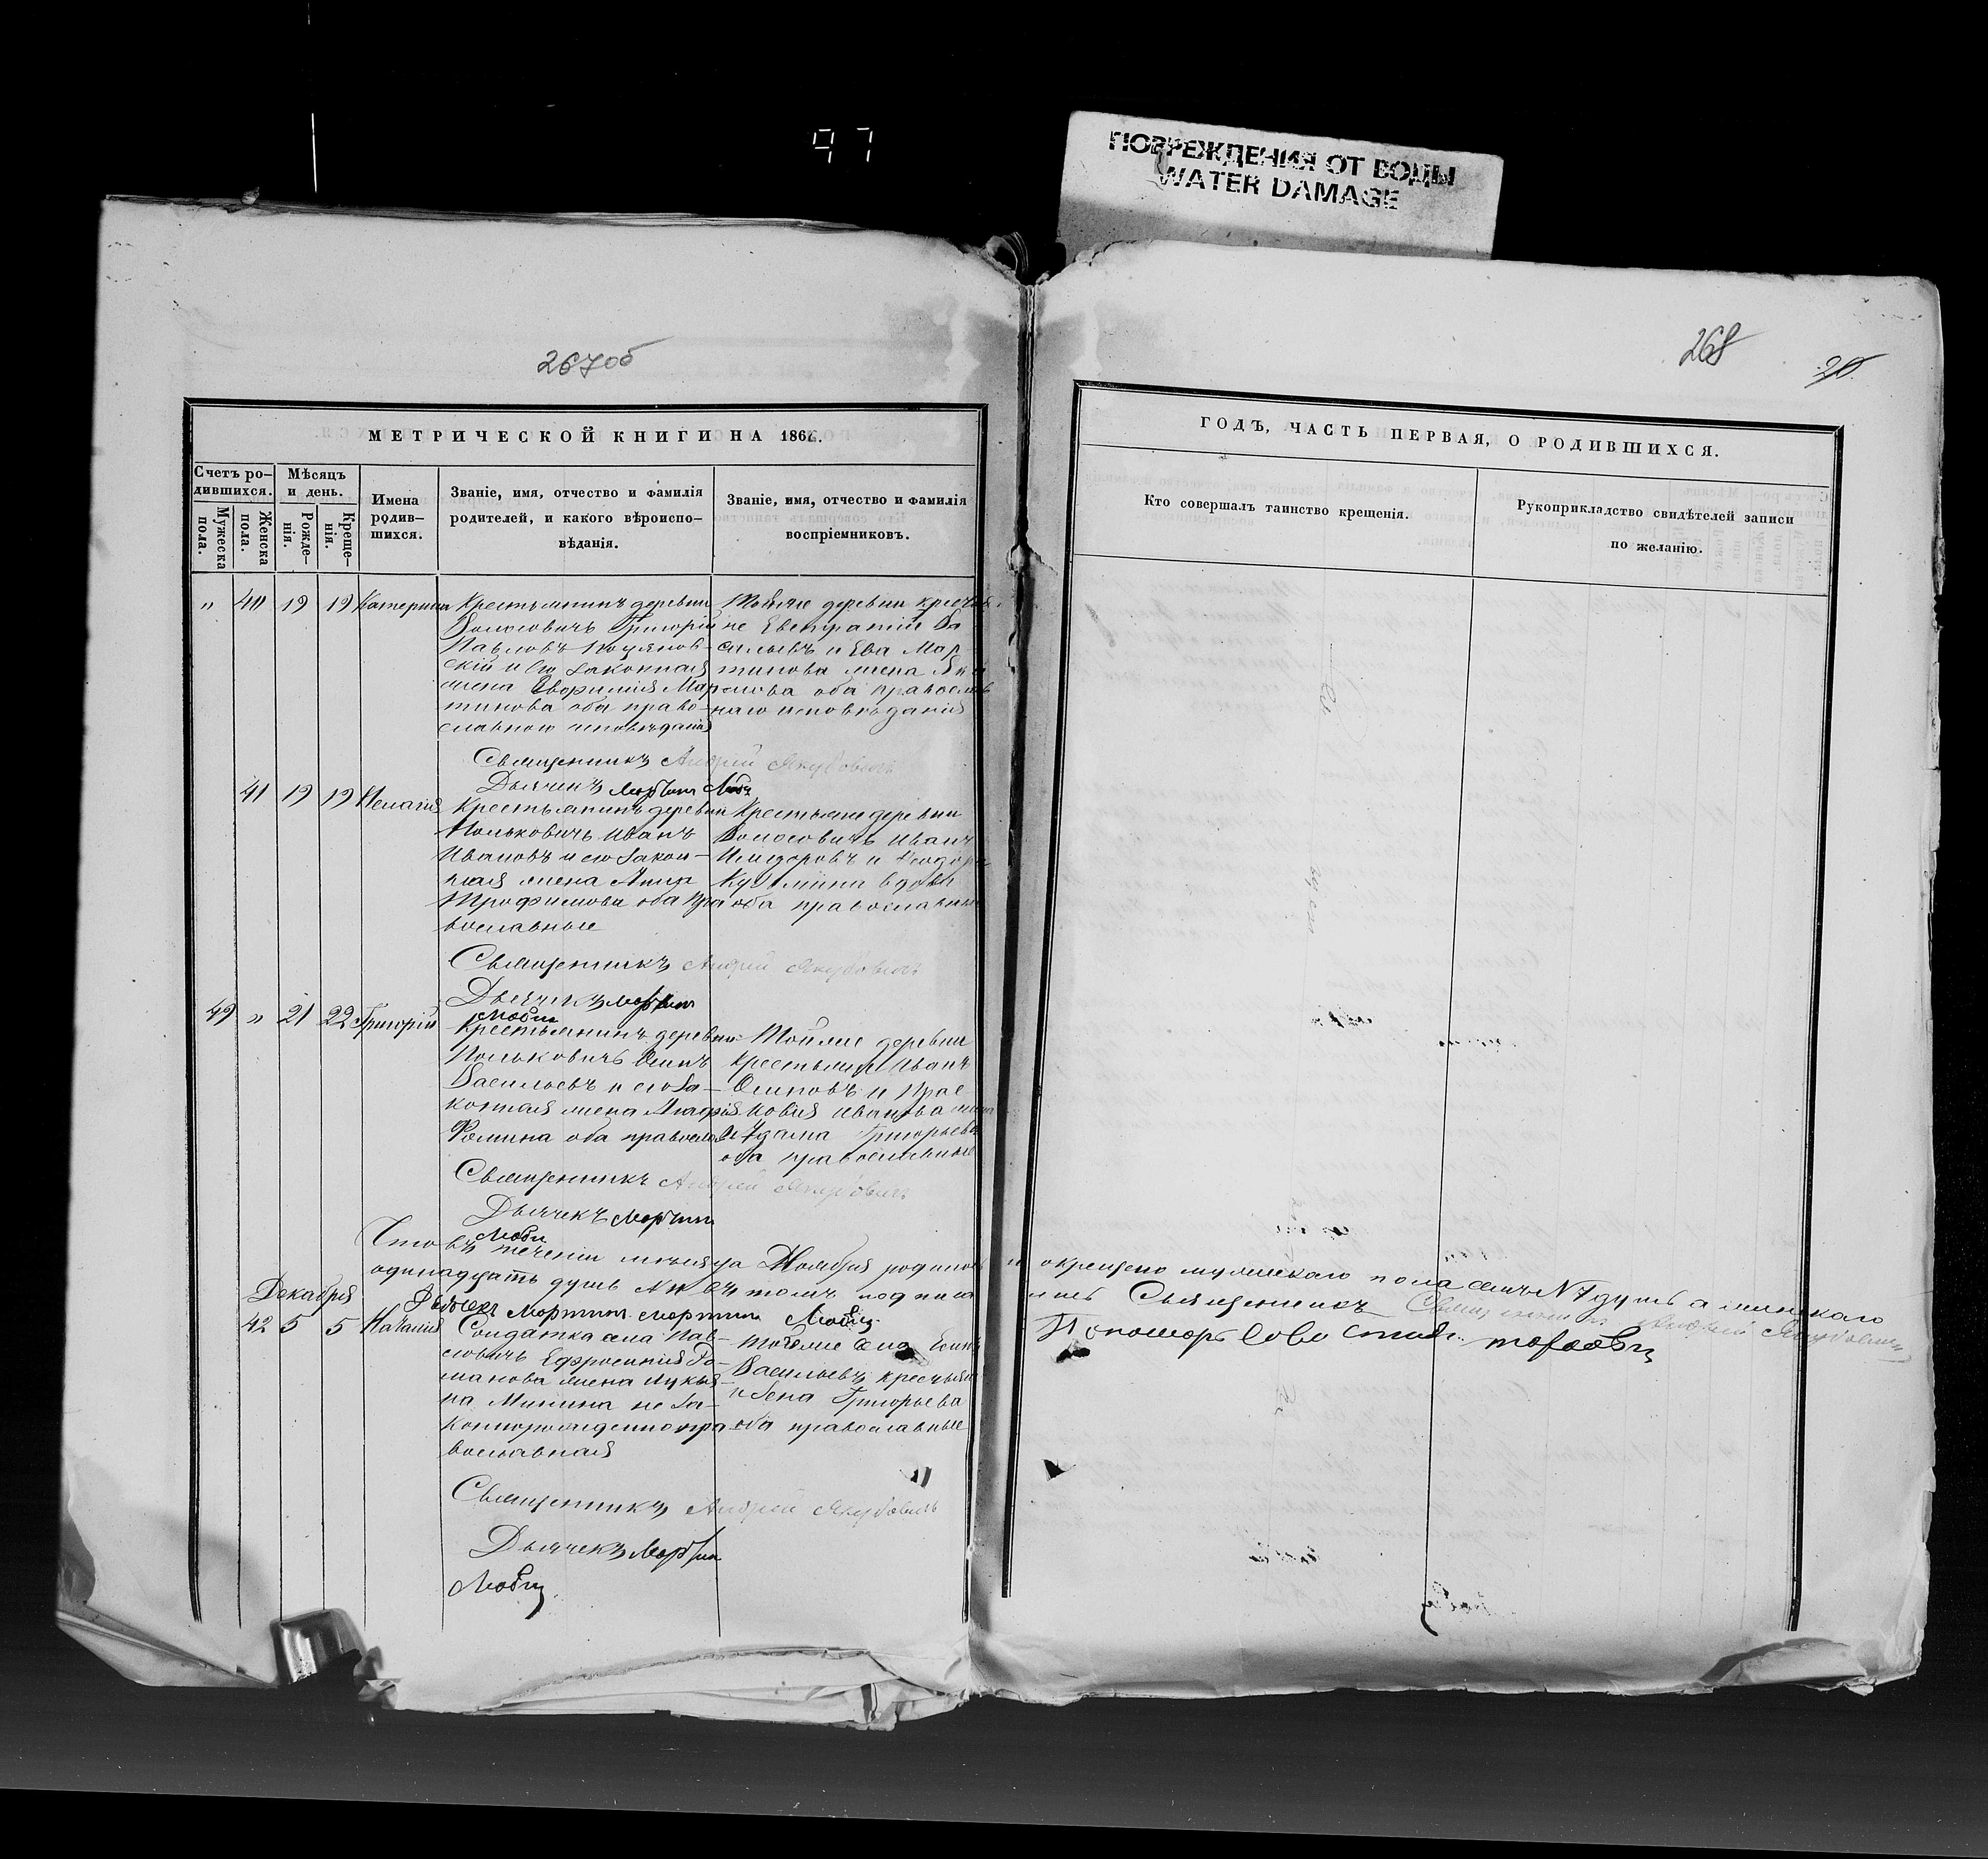 97
ПОВРЕЖДЕНИЯ ОТ ВОДЫ
WATER DAMAGE
267об
268
20
МЕТРИЧЕСКОЙ КНИГИ НА 186
Счетъ ро-
дившихся.
Мужеска
пола.
Женска
пола.
Мѣсяцъ
и день.
Рожде-
нія.
Креще-
нія.
Имена
родив-
шихся.
Званіе, имя, отчество и фамилія
родителей, и какого вѣроиспо-
вѣданія.
Званіе, имя, отчество и фамилія
воспріемниковъ.
ГОДЪ, ЧАСТЬ ПЕРВАЯ, О РОДИВШИХСЯ.
Кто совершалъ таинство крещенія.
Рукоприкладство свидѣтелей записи
по желанію.
" 40 19 19 Катерина
Крестьянинъ деревни
Волосовичъ Григорій
Павловъ
скій и его законная
жена Евфимія Мар
тинова оба право-
славного исповѣданія
Тойже деревни
не Евстратій Ва
сильевъ и Ева Мар
тинова жена Яки
мова оба православ
наго исповѣданія
Священникъ Андрей Якубовичъ
Дьячекъ Мартин
41 19 19 Пелагія
Крестьянинъ деревни
Польковичъ Иванъ
Ивановъ и его закон-
ная жена Анна
Трофимова оба пра
вославные
Крестьяне деревни
Волосовичъ Иванъ
Исидоровъ и
Кузьмина вдова
оба православные
Священникъ Андрей Якубовичъ
Дьячекъ Мартин
49 " 21 22 Григорій
Крестьянинъ деревни
Польковичъ Осипъ
Васильевъ и его за-
конная жена Агафія
Фомина оба православ
Тойже деревни
крестьяне Иванъ
Осиповъ и Прас
ковія Иванова жена
Адама Григорьева
оба православные
Священникъ Андрей Якубовичъ
Дьячекъ Мартин
Что въ теченіи мѣсяца Ноября родилось и окрещено мужескаго пола семь N7 душъ а женскаго
одинадцать душъ въ томъ подписа Священникъ Андрей Якубовичъ
Дьячекъ Мартин
Пономарь
Декабря
42 5 5 Наталія
Солдатка села Пав-
ловичъ Ефросинія Ро-
манова жена Лукья-
на Минина не за-
коннорожденно пра
вославная
Тойже села Осипъ
Васильевъ
Григорьева
оба православные
Священникъ Андрей Якубовичъ
Дьячекъ Мартин